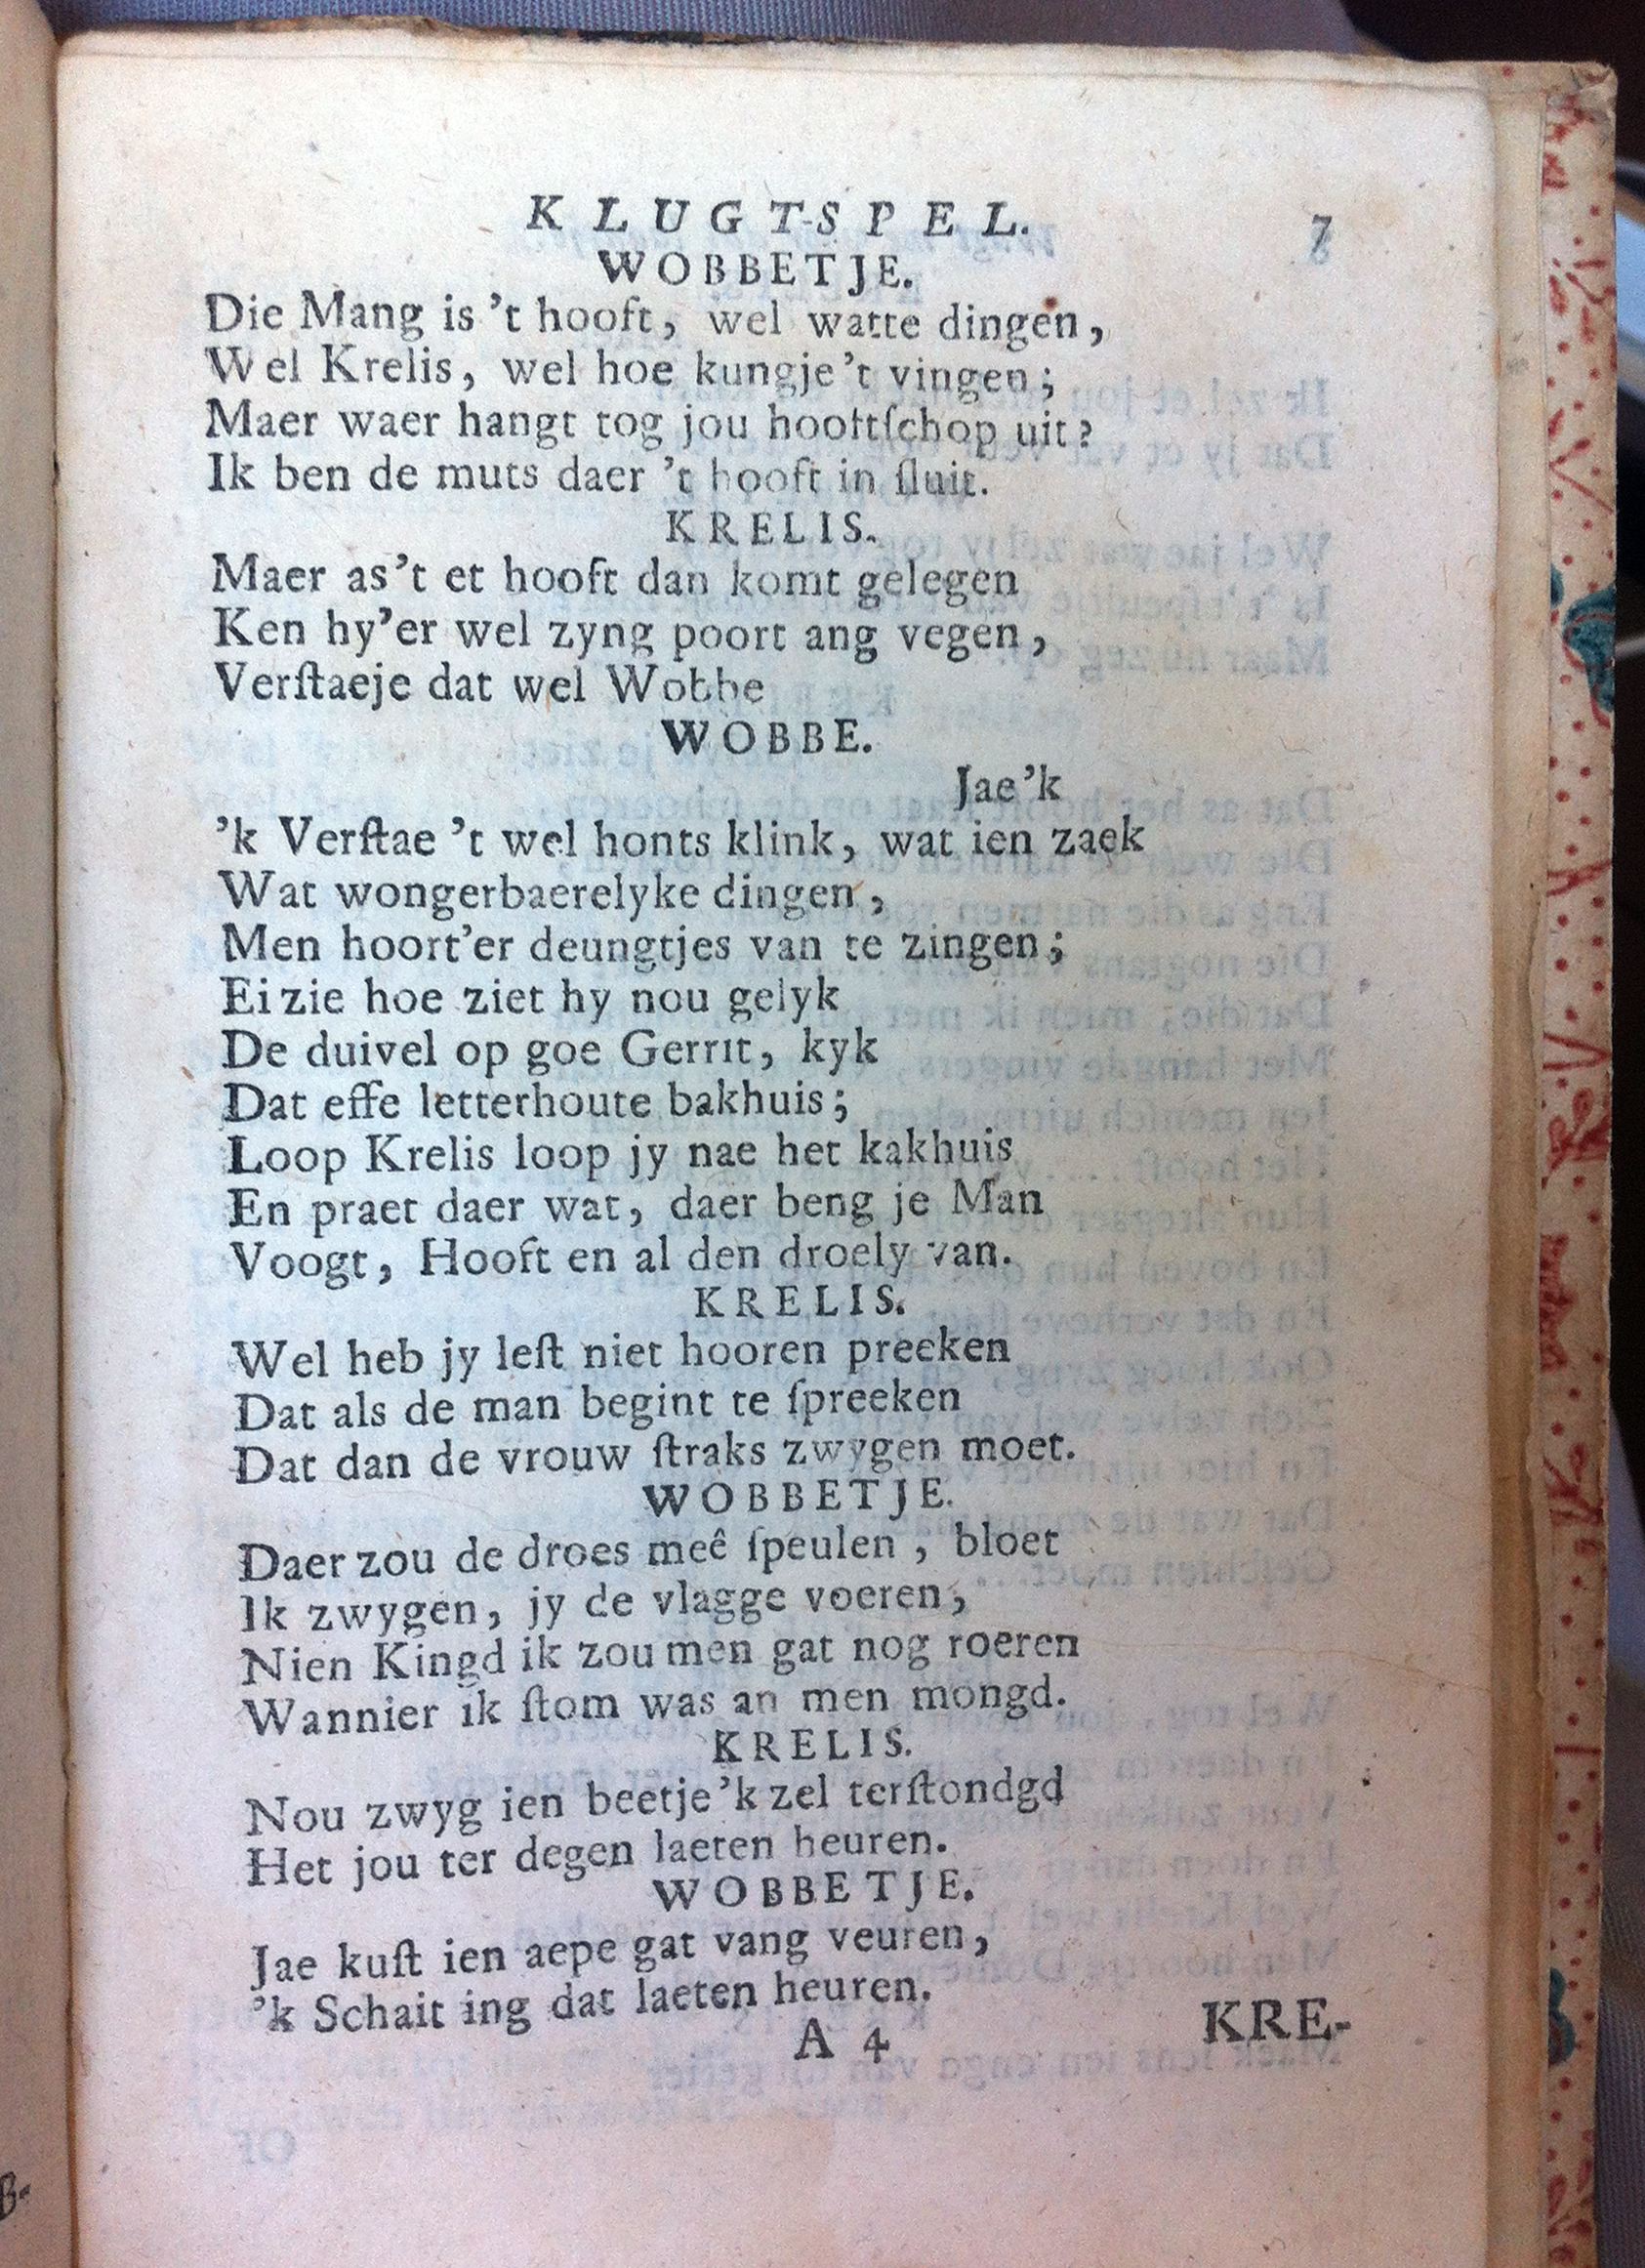 KLUGT-SPEL. 7
WOBBETJE.
Die Mang is 't hooft, wel watte dingen,
Wel Krelis, wel hoe kungje 't vingen;
Maer waer hangt tog jou hooftſchop uit?
Ik ben de muts daer 't hooft in ſluit.
KRELIS.
Maer as 't et hooft dan komt gelegen
Ken hy'er wel zyng poort ang vegen,
Verſtaeje dat wel Wobbe
WOBBE.
Jae 'k
'k Verſtae 't wel honts klink, wat ien zaek
Wat wongerbaerelyke dingen,
Men hoort'er deungtjes van te zingen;
Ei zie hoe ziet hy nou gelyk
De duivel op goe Gerrit, kyk
Dat effe letterhoute bakhuis;
Loop Krelis loop jy nae het kakhuis
En praet daer wat, daer beng je Man
Voogt, Hooft en al den droely van.
KRELIS.
Wel heb jy leſt niet hooren preeken
Dat als de man begint te ſpreeken
Dat dan de vrouw ſtraks zwygen moet.
WOBBETJE.
Daer zou de droes meê ſpeulen, bloet
Ik zwygen, jy de vlagge voeren,
Nien Kingd ik zou men gat nog roeren
Wannier ik ſtom was an men mongd.
KRELIS.
Nou zwyg ien beetje 'k zel terſtondgd
Het jou ter degen laeten heuren.
WOBBETJE.
Jae kuſt ien aepe gat vang veuren,
'k Schait ing dat laeten heuren.
A 4 KRE-